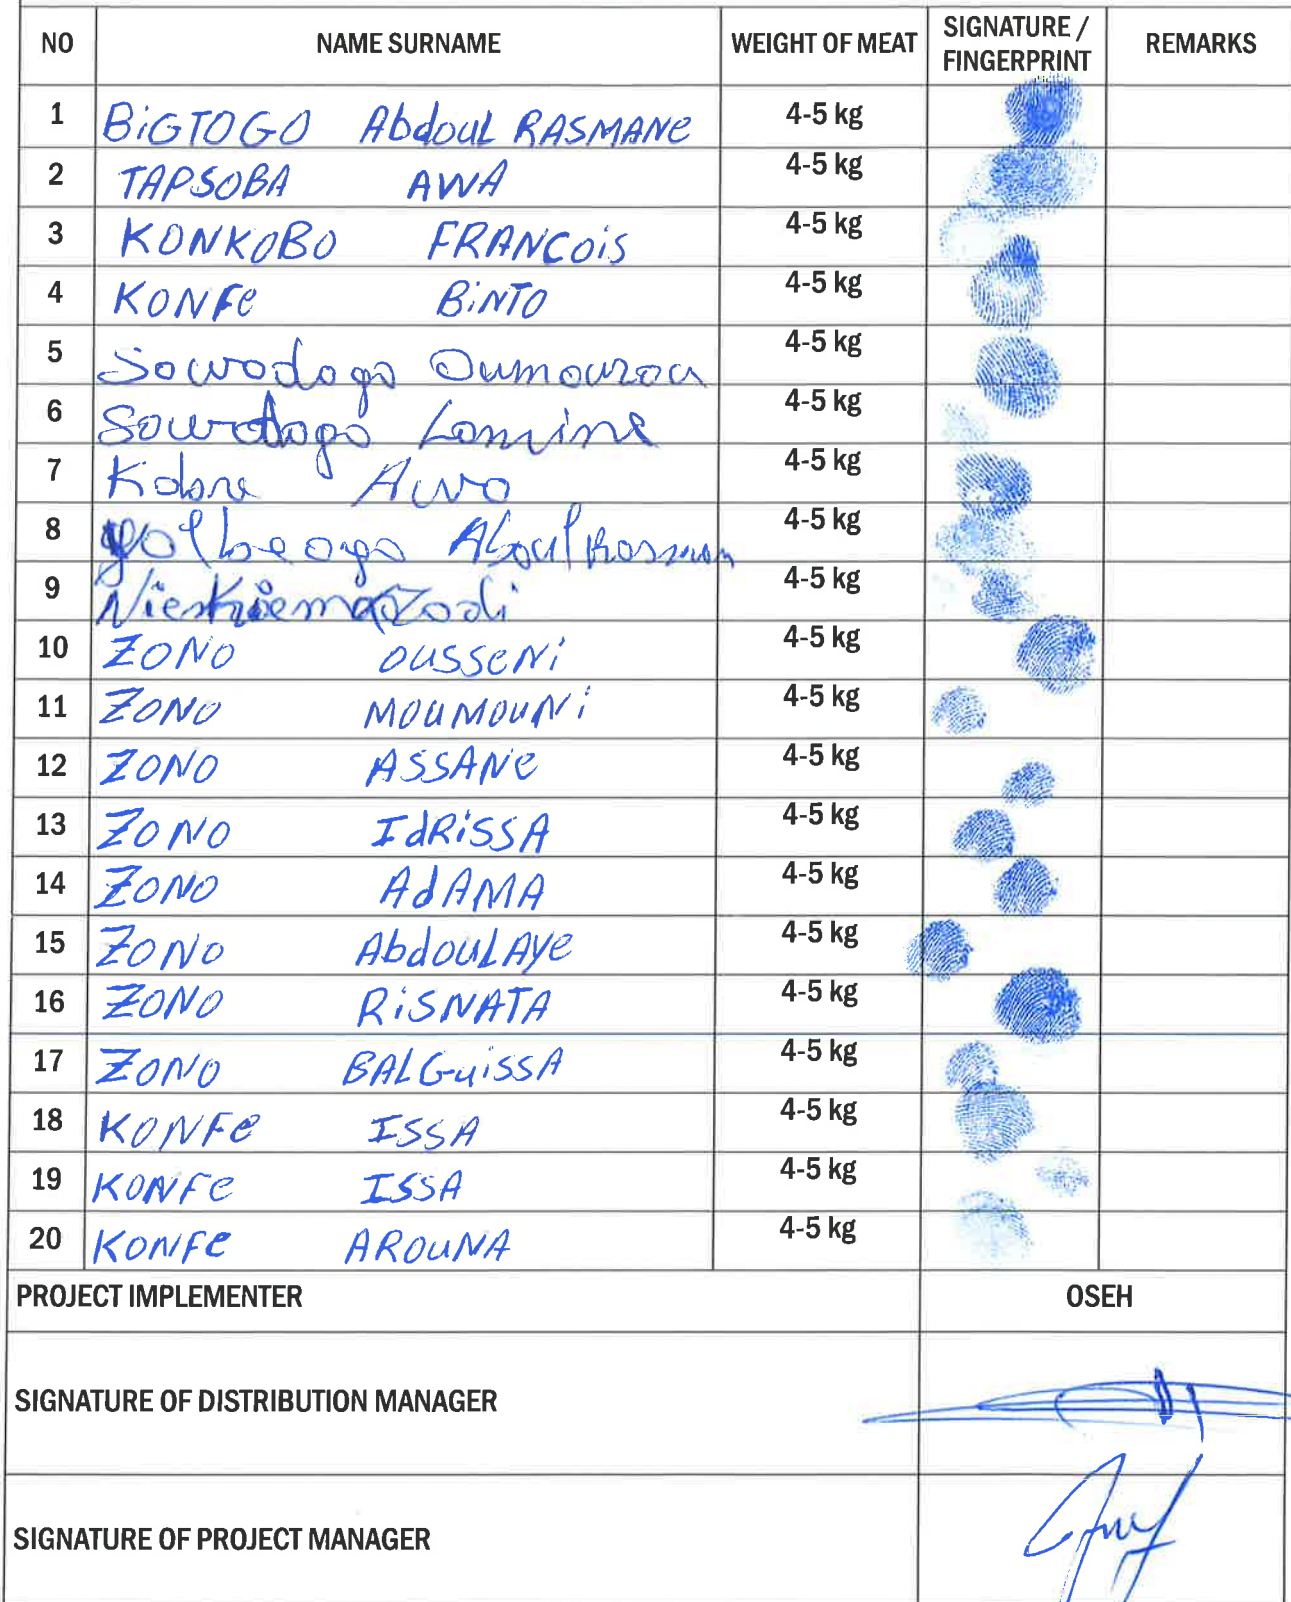 NO NAME SURNAME WEIGHT OF MEAT SIGNATURE / FINGERPRINT REMARKS
1 BiGTOGO Abdoul RASMANe 4-5 kg
2 TAPSOBA AWA 4-5 kg
3 KONKOBO FRANCois 4-5 kg
4 KONFe BiNTO 4-5 kg
5 Sawadogo Oumourou 4-5 kg
6 Sawadogo Lamine 4-5 kg
7 Kabre Awa 4-5 kg
8 4-5 kg
9 4-5 kg
10 ZONO OUSSeNi 4-5 kg
11 ZONO MOUMOUNi 4-5 kg
12 ZONO ASSANe 4-5 kg
13 ZONO IdRiSSA 4-5 kg
14 ZONO AdAMA 4-5 kg
15 ZONO AbdoulAye 4-5 kg
16 ZONO RiSNATA 4-5 kg
17 ZONO BALGuiSSA 4-5 kg
18 KONFe ISSA 4-5 kg
19 KONFe ISSA 4-5 kg
20 KONFe AROUNA 4-5 kg
PROJECT IMPLEMENTER OSEH
SIGNATURE OF DISTRIBUTION MANAGER
SIGNATURE OF PROJECT MANAGER